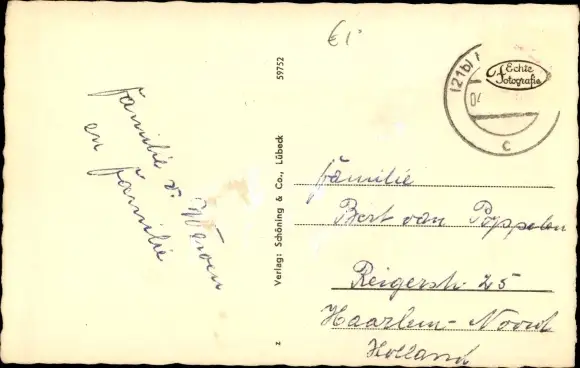 €1-
59752
Verlag: Schöning & Co., Lübeck
z
(21b)
04
c
Echte
Fotografie
familie v.
en familie
familie
Bert van Poppelen
Reigerstr 25
Haarlem-Noord
Holland